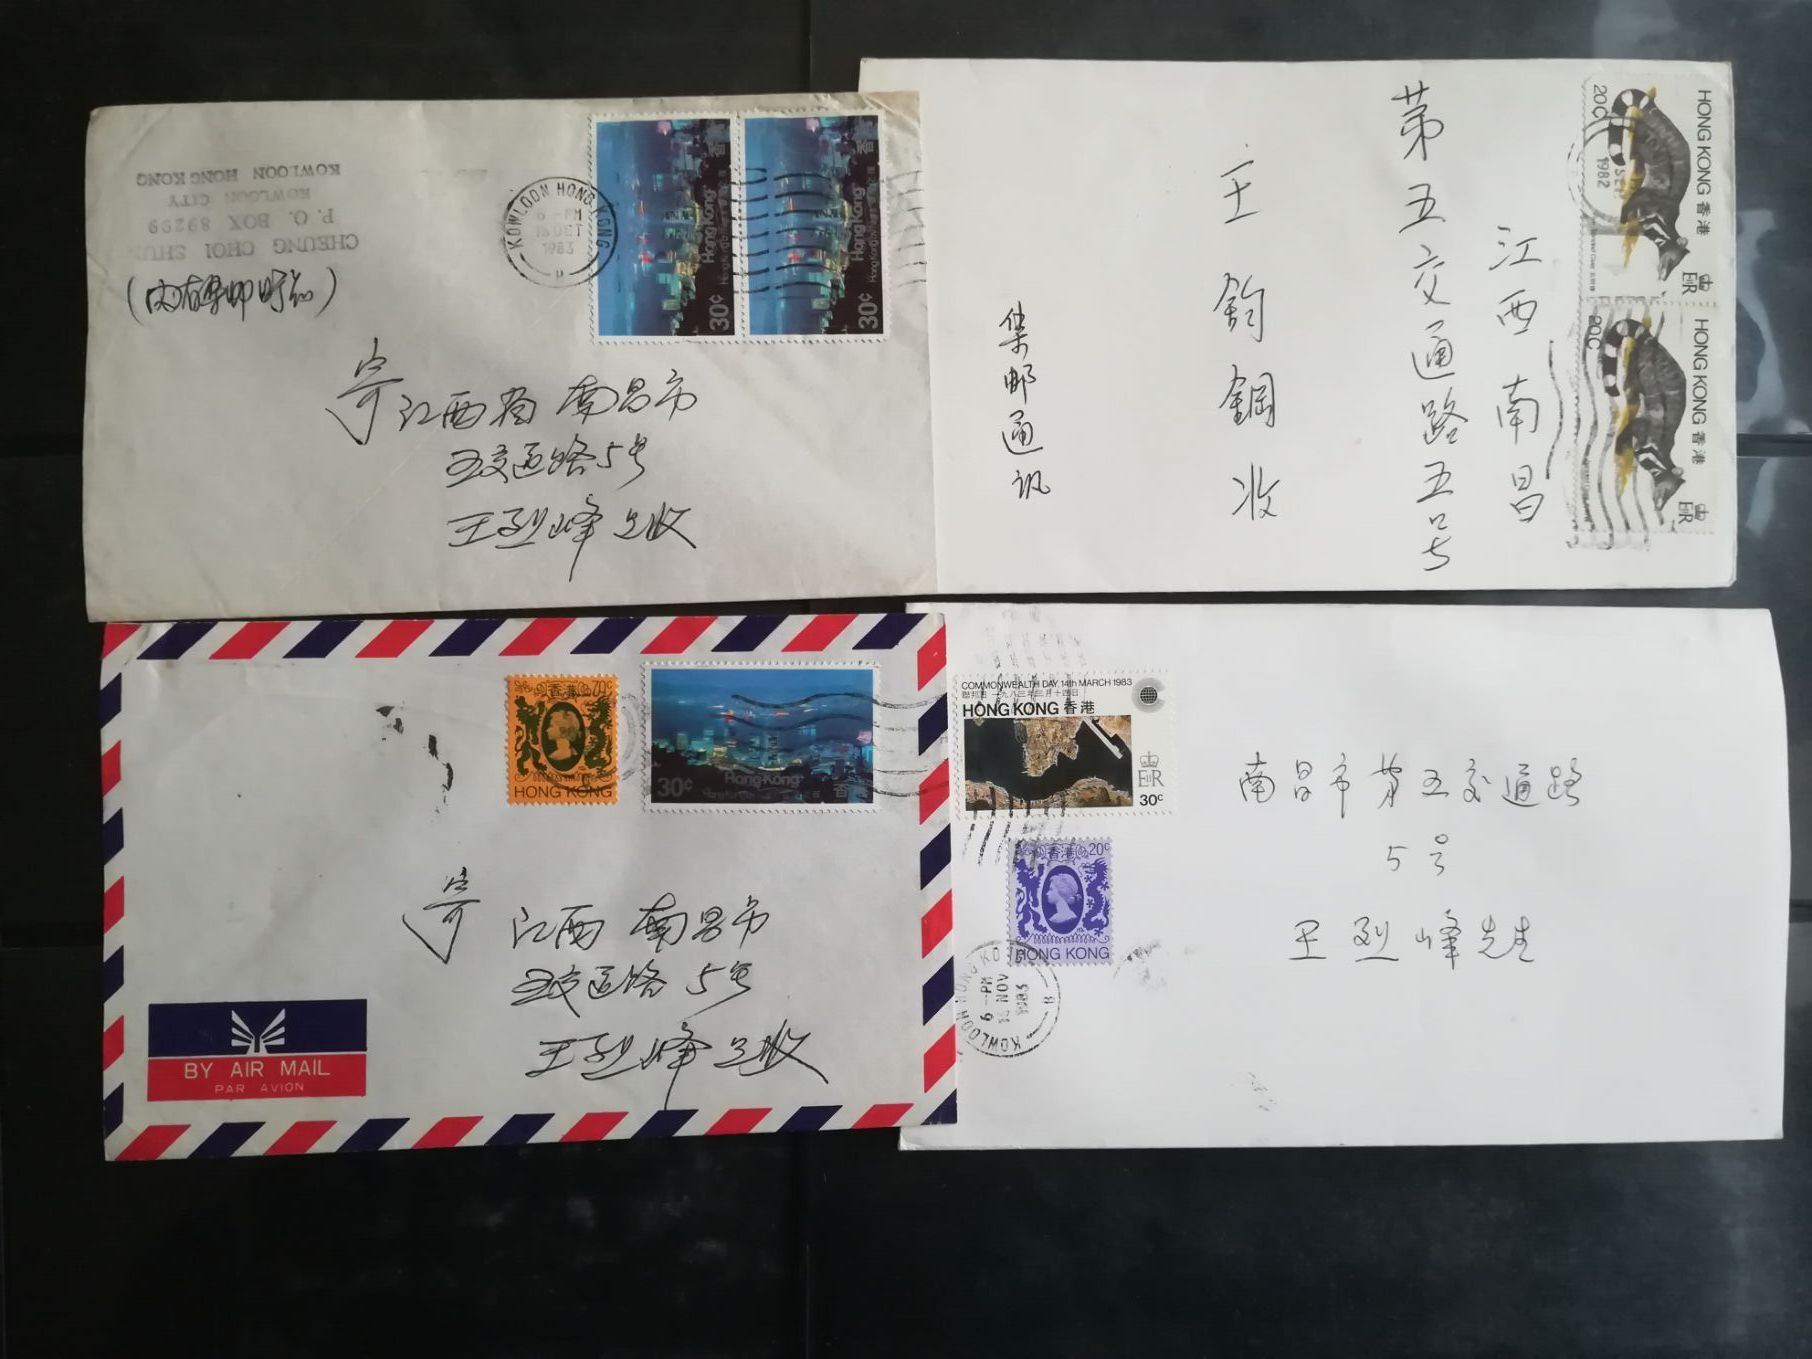 CHEUNG CHOI SHUN
P. O. BOX 89299
KOWLOON CITY
KOWLOON HONG KONG
KOWLOON HONG KONG
6 - PM
1983
30¢
Hong Kong
香港
30¢
Hong Kong
香港
寄江西省南昌市
五交通路5号
王烈峰先收
HONG KONG 香港
20C
EIIR
SEP
1982
HONG KONG 香港
20C
EIIR
江西南昌
第五交通路五号
王钧鋼收
集邮通讯
香港 70¢
HONG KONG
30¢
Hong Kong
香港
寄江西南昌市
五交通路5号
王烈峰先收
BY AIR MAIL
PAR AVION
COMMONWEALTH DAY, 14th MARCH 1983
聯邦日 一九八三年三月十四日
HONG KONG 香港
EIIR
30c
香港 20¢
HONG KONG
KOWLOON HONG KONG
6 - PM
NOV
南昌市第五交通路
5号
王烈峰先生